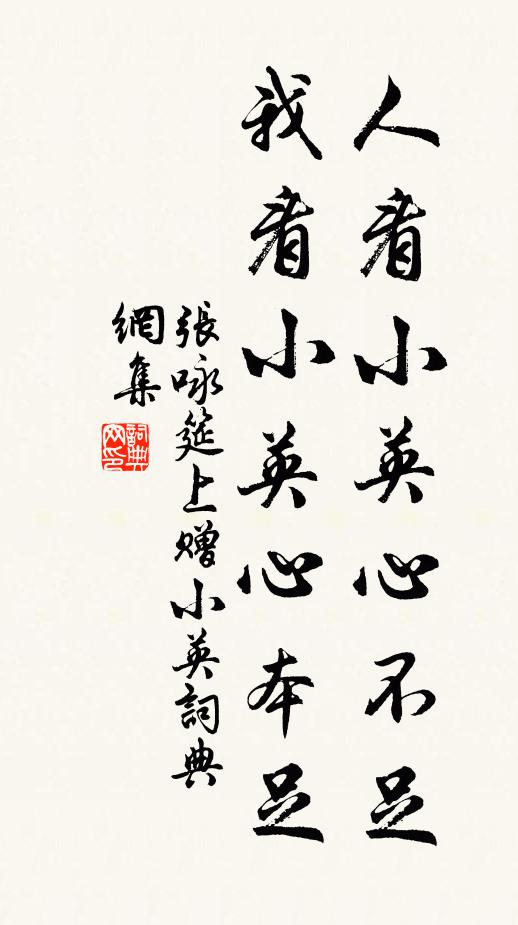 人看小英心不足
我看小英心本足
張咏筵上贈小英詞典
網集
詞典網印